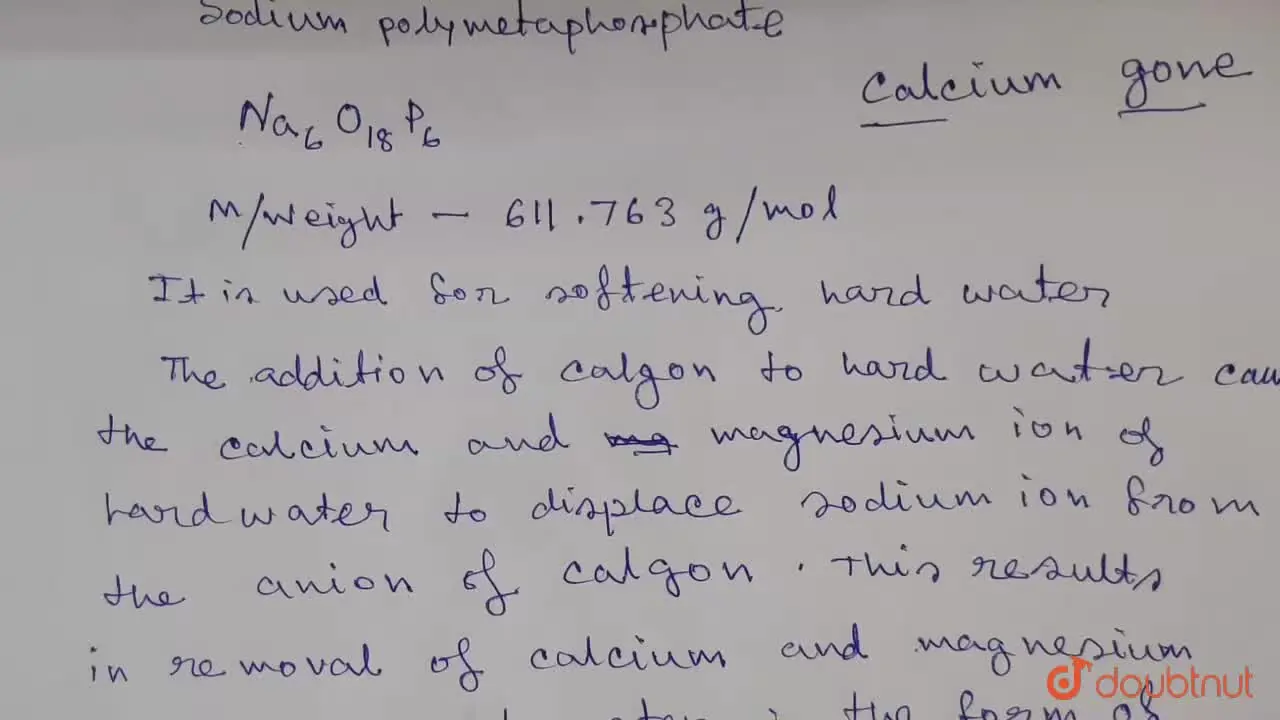 Sodium polymetaphosphate
Calcium gone
Na6O18P6
M/weight – 611.763 g/mol
It is used for softening hard water
The addition of calgon to hard water cau
the calcium and mg magnesium ion of
hard water to displace sodium ion from
the anion of calgon. This results
in removal of calcium and magnesium
in the form of
doubtnut